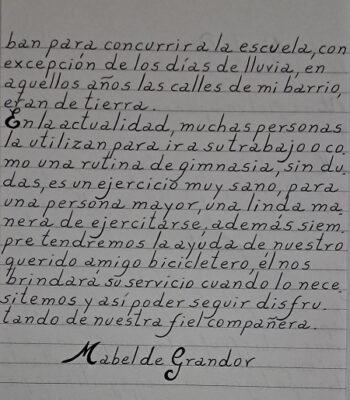 ban para concurrir a la escuela, con
excepción de los días de lluvia, en
aquellos años las calles de mi barrio,
eran de tierra.
En la actualidad, muchas personas
la utilizan para ir a su trabajo o co
mo una rutina de gimnasia, sin du.
das, es un ejercicio muy sano, para
una persona mayor, una linda ma.
nera de ejercitarse, además siem.
pre tendremos la ayuda de nuestro
querido amigo bicicletero, él nos
brindará su servicio cuando lo nece
sitemos y así poder seguir disfru.
tando de nuestra fiel compañera.
Mabel de Grandor